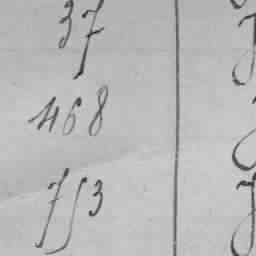 37
468
753